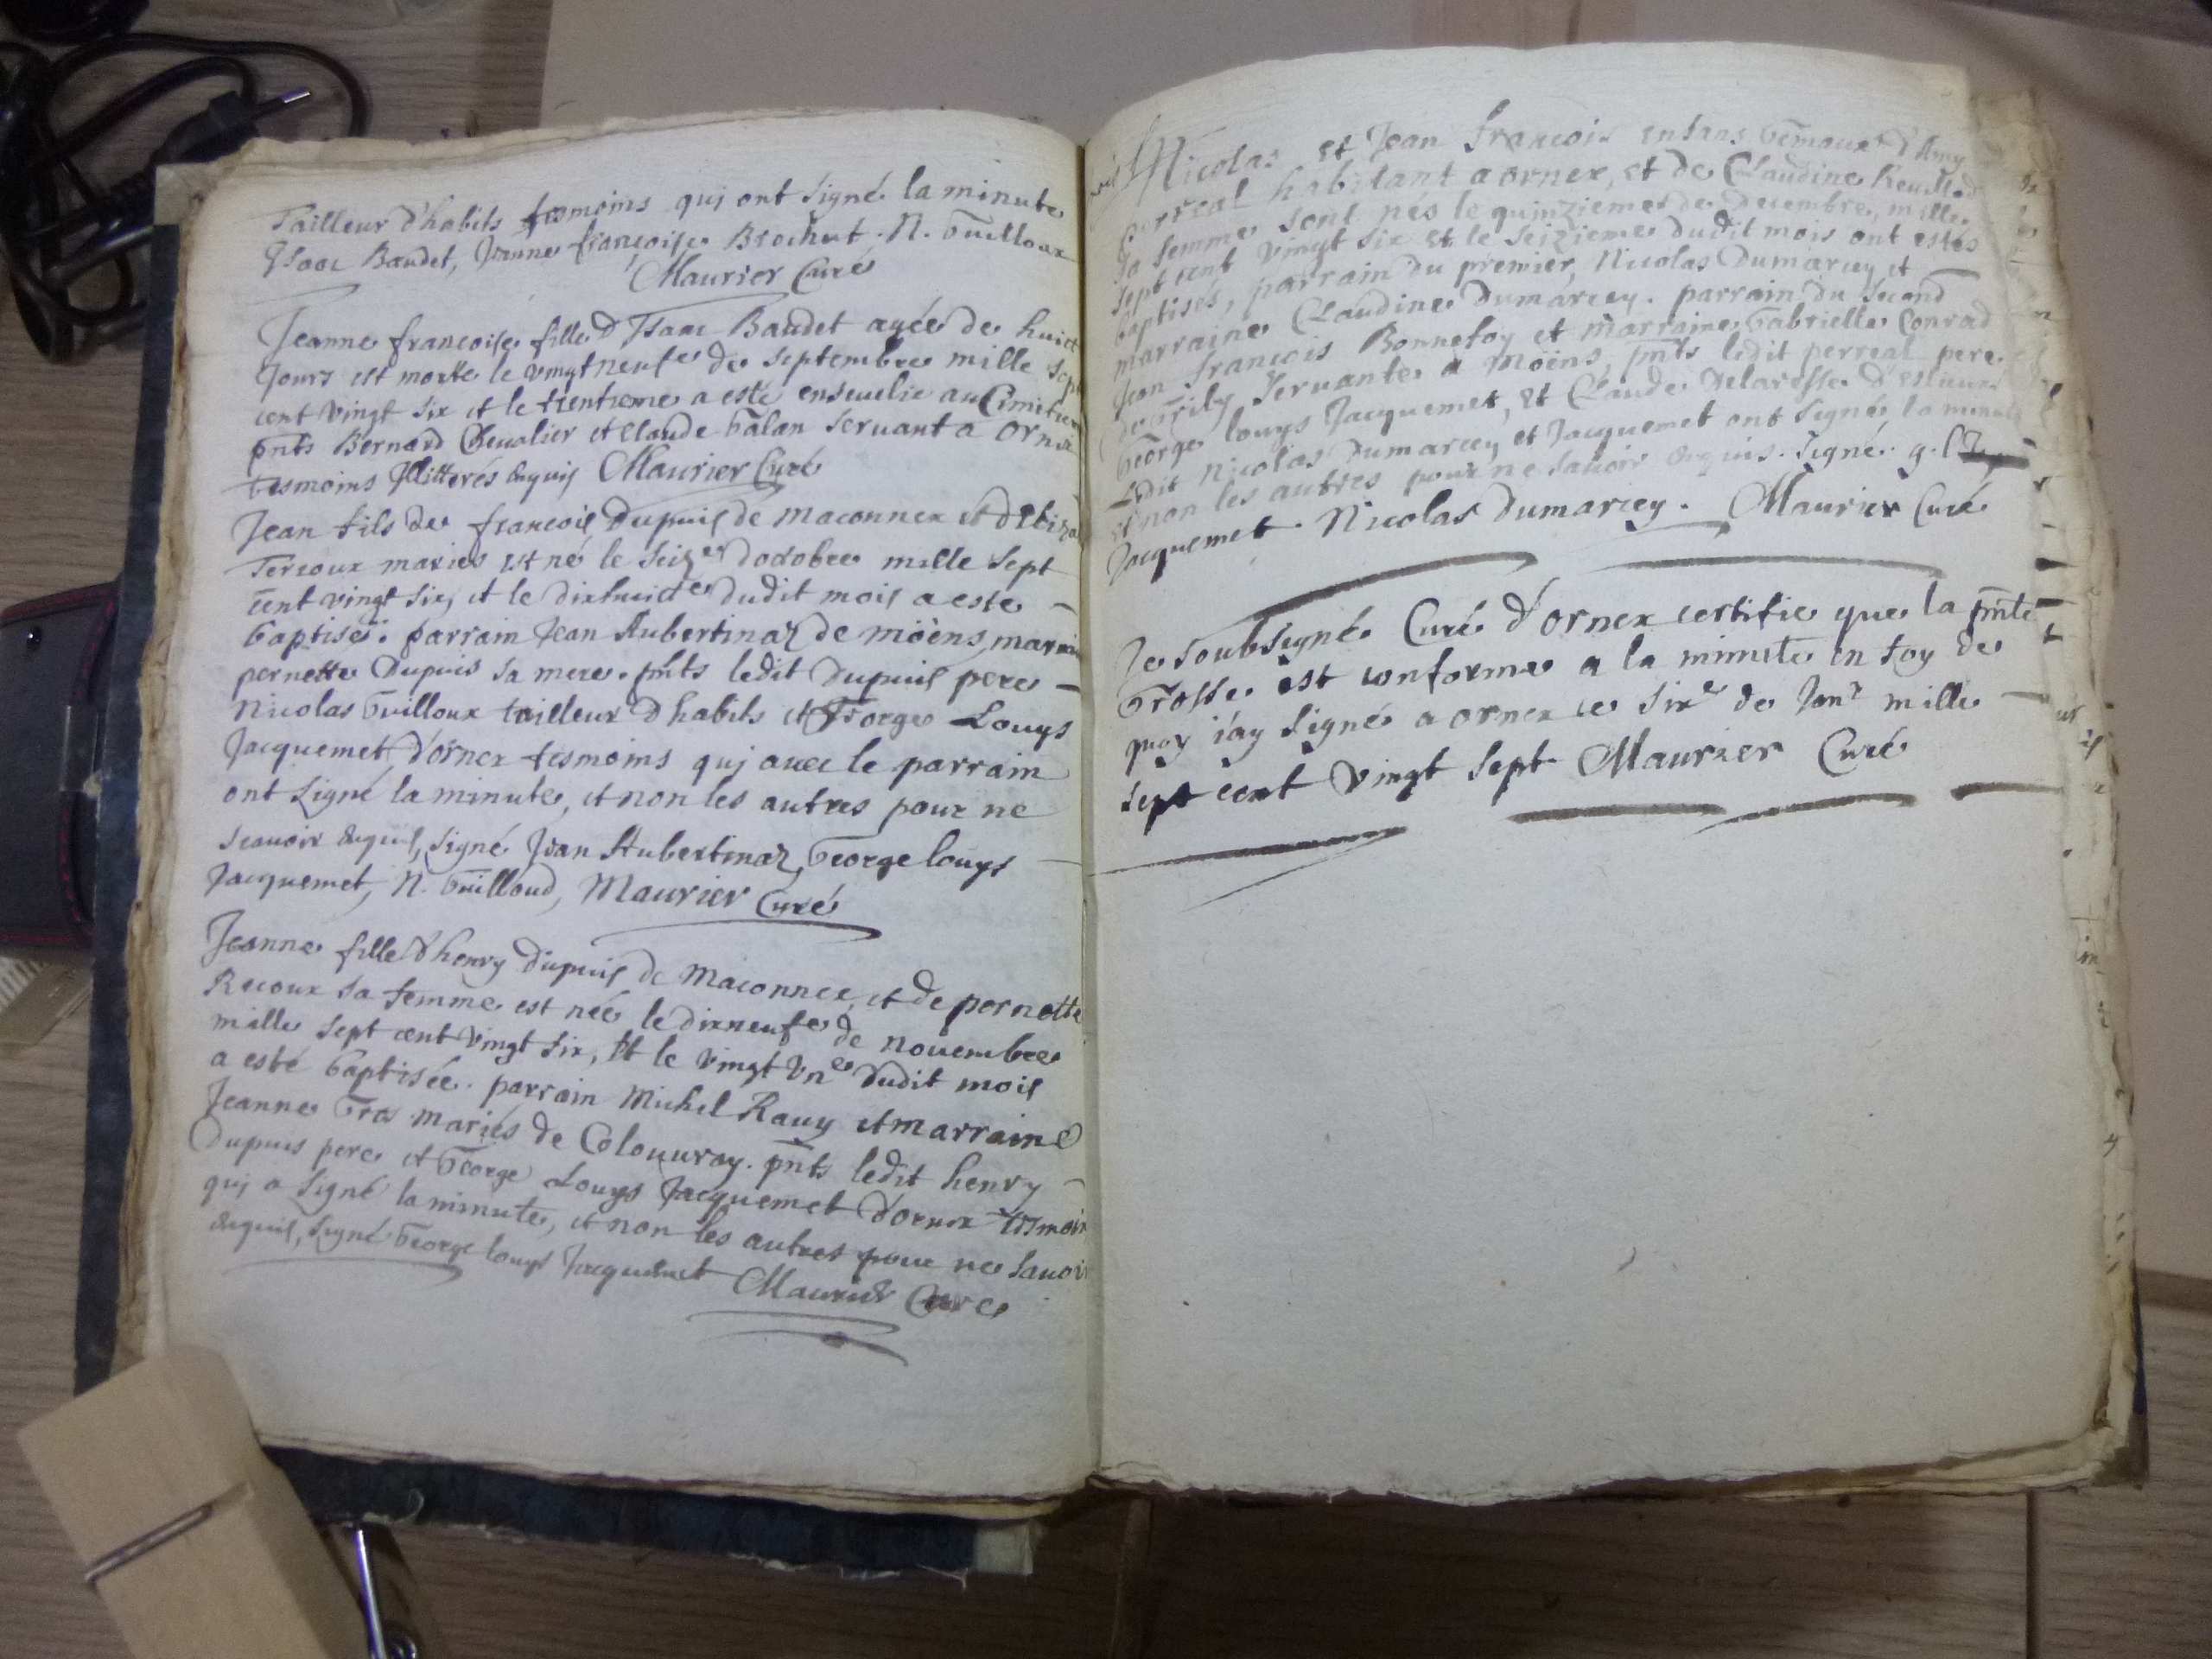 Tailleur d'habits tesmoins qui ont signé la minute
Isaac Baudet, Jeanne françoise Brochut. N. Guilloux
Maurier Curé
Jeanne françoise fille d'Isaac Baudet agée de huict
Jours est morte le vingtneufe de septembre mille sept
cent vingt six et le trentieme a esté enseuelie au Cimitiere
pnts Bernard Cheualier et Claude Galan seruant a Ornex
tesmoins Illitterés Enquis Maurier Curé
Jean fils de françois Dupuis de maconnex et d'
Tercoux mariés est né le seize d'octobre mille sept
cent vingt six, et le dixhuicte dudit mois a este
baptisé. parrain Jean Aubertinaz de möens, marraine
pernette Dupuis sa mere. pnts ledit Dupuis pere
Nicolas Guilloux tailleur d'habits et George Louys
Jacquemet d'ornex tesmoins qui auec le parrain
ont signé la minute, et non les autres pour ne
scauoir enquis, signé Jean Aubertinaz, George louys
Jacquemet, N. Guilloud, Maurier Curé
Jeanne fille d'henry dupuis de Maconnex, et de pernette
Recoux sa femme est née le dixneufe de nouembre
mille sept cent vingt six, Et le vingt vne dudit mois
a esté baptisée. parrain Michel Rauy et marraine
Jeanne Gros mariés de Colouuray. pnts ledit henry
Dupuis pere et George Louys Jacquemet d'ornex tesmoin
qui a signé la minute, et non les autres pour ne sauoir
enquis, signé George louys Jacquemet Maurier Curé
Nicolas et Jean francois enfans Gemaux d'Amy
perreal habitant a ornex, et de Claudine Reuillod
sa femme sont nés le quinzieme de decembre, mille
sept cent vingt six et le seizieme dudit mois ont estés
baptisés, parrain du premier, Nicolas Dumarcey et
marraine Claudine Dumarcey. parrain du second
Jean francois Bonnefoy et marraine Gabrielle Conrad
de Grily seruante a Möens, pnts ledit perreal pere
George louys Jacquemet, et Claude Delaresse
Ledit Nicolas Dumarcey et Jacquemet ont signé la minute
et non les autres pour ne sauoir enquis. signé. g. l
Jacquemet. Nicolas Dumarcey. Maurier Curé
Je soubsigné Curé d'ornex certifie que la pnte
Grosse est conforme a la minute en foy de
quoy i'ay signé a ornex ce sixe de Janr mille
sept cent vingt sept Maurier Curé